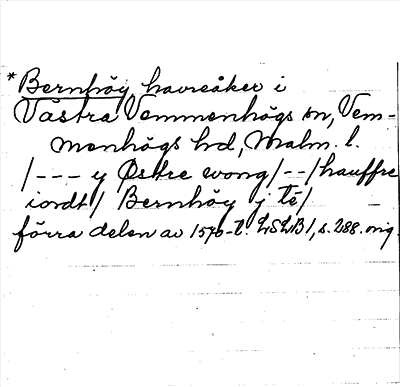 *Bernhöy, havreåker i
Västra Vemmenhögs sn, Vem-
menhögs hd, Malm. l.
/--- y Østre wong/--/hauffre
iordt/ Bernhöy j té/ –
förra delen av 1570-t. LSLB1, s. 288. orig.